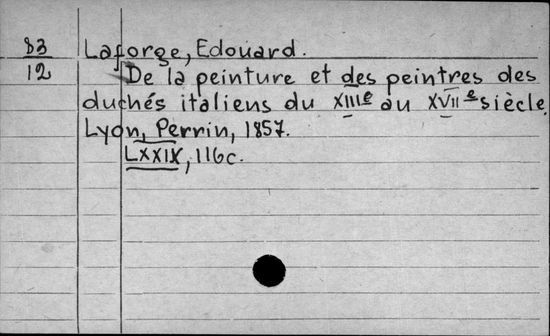 83
12
Laforge, Edouard.
De la peinture et des peintres des
duchés italiens du XIIIe au XVIIe siècle.
Lyon, Perrin, 1857.
LXXIX, 116c.